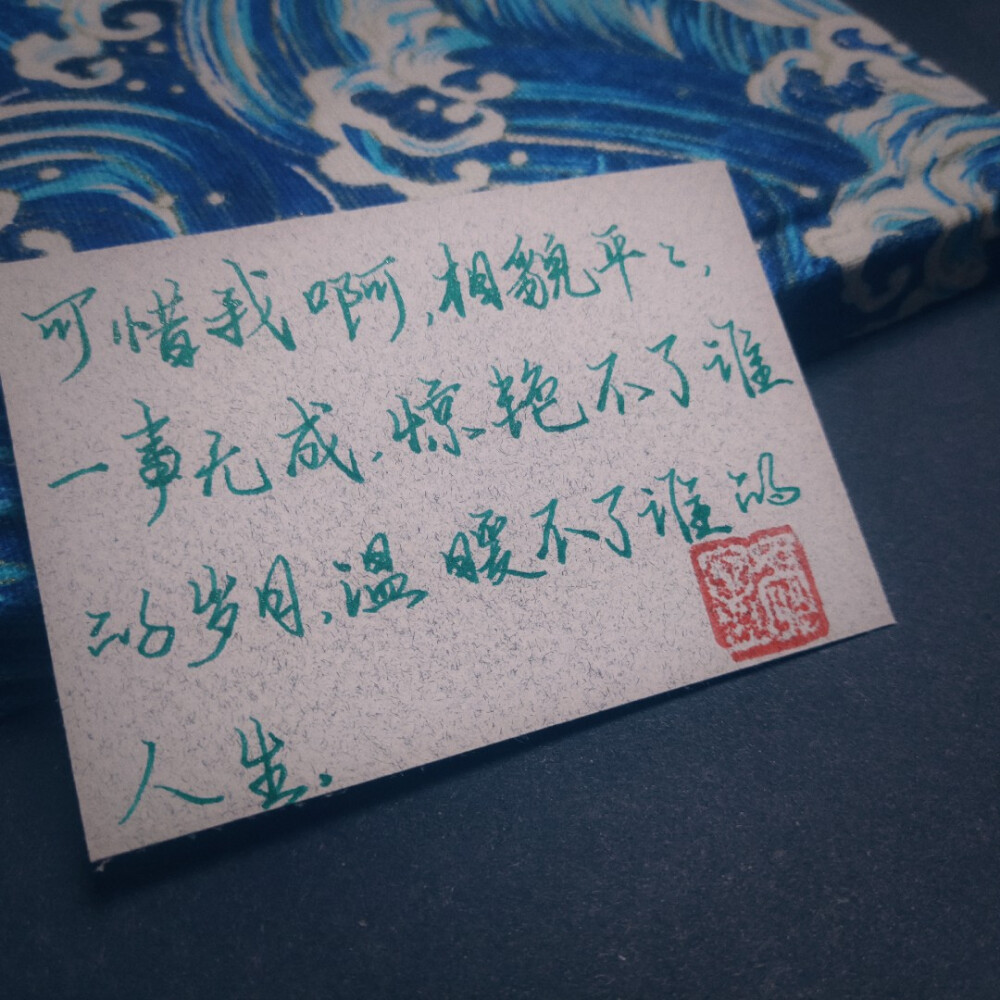 可惜我啊,相貌平々,
一事无成,惊艳不了谁
的岁月,温暖不了谁的
人生,